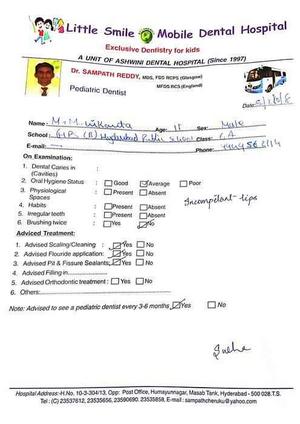 Little Smile Mobile Dental Hospital
Exclusive Dentistry for kids
A UNIT OF ASHWINI DENTAL HOSPITAL (Since 1997)
Dr. SAMPATH REDDY, MDS, FDS RCPS (Glasgow)
MFDS RCS (England)
Pediatric Dentist
Date:
Name: Age: 11 Sex: Male
School: Hyderabad Public School Class:
E-mail: Phone:
On Examination:
1. Dental Caries in :
(Cavities)
2. Oral Hygiene Status : Good Average Poor
3. Physiological : Present Absent
Spaces
Incompetant - lips
4. Habits : Present Absent
5. Irregular teeth : Present Absent
6. Brushing twice : Yes No
Adviced Treatment:
1. Advised Scaling/Cleaning : Yes No
2. Advised Flouride application: Yes No
3. Advised Pit & Fissure Sealants: Yes No
4. Advised Filling in
5. Advised Orthodontic treatment : Yes No
6. Others:
Note: Advised to see a pediatric dentist every 3-6 months Yes No
Hospital Address:-H.No. 10-3-304/13, Opp: Post Office, Humayunnagar, Masab Tank, Hyderabad - 500 028.T.S.
Tel : (C) 23537612, 23535656, 23590690, 23535858, E-mail : sampathcheruku@yahoo.com